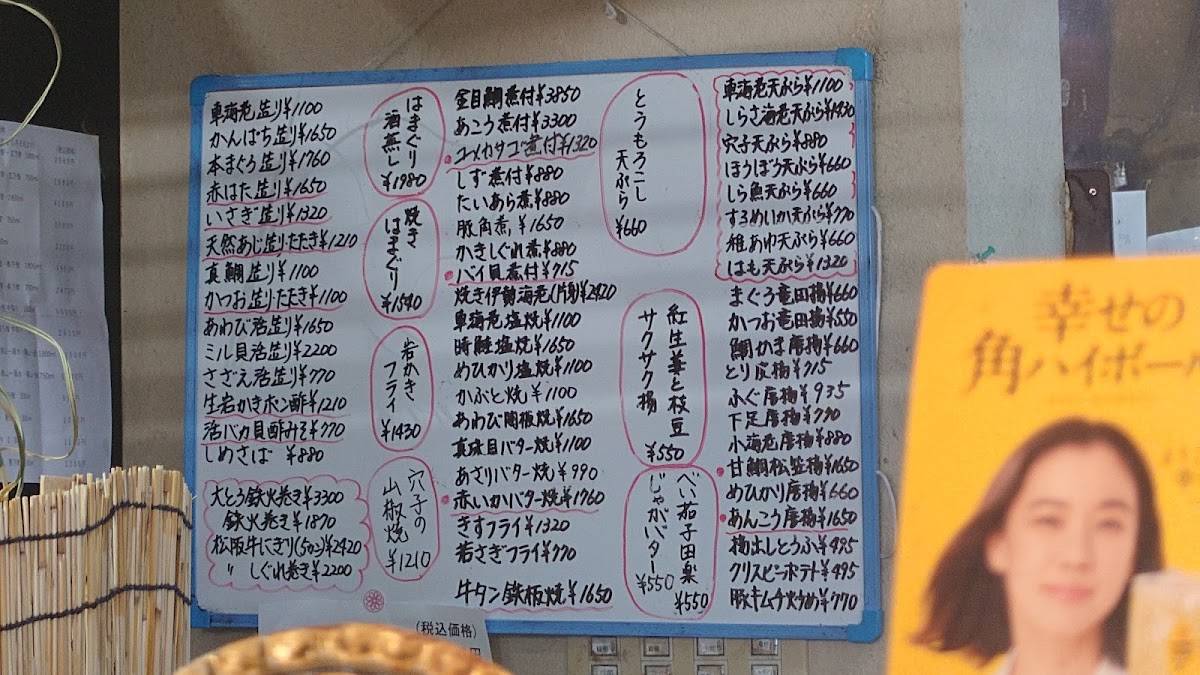 車海老造り¥1100
かんぱち造り¥1650
本まぐろ造り¥1760
赤はた造り¥1650
いさぎ造り¥1320
天然あじ造り・たたき¥1210
真鯛造り¥1100
かつお造り・たたき¥1100
あわび活造り¥1650
ミル貝活造り¥2200
さざえ活造り¥770
生岩かきポン酢¥1210
活バカ貝酢みそ¥770
しめさば ¥880
大とろ鉄火巻き¥3300
鉄火巻き¥1870
松阪牛にぎり(5カン)¥2420
〃 しぐれ巻き¥2200
はまぐり
酒蒸し
¥1980
焼き
はまぐり
¥1540
岩かき
フライ
¥1430
穴子の
山椒焼
¥1210
金目鯛煮付¥3850
あこう煮付¥3300
ユメカサゴ煮付¥1320
しず煮付¥880
たいあら煮¥880
豚角煮¥1650
かきしぐれ煮¥880
バイ貝煮付¥715
焼き伊勢海老(片身)¥2420
車海老塩焼¥1100
時鮭塩焼¥1650
めひかり塩焼¥1100
かぶと焼¥1100
あわび陶板焼¥1650
真珠目バター焼¥1100
あさりバター焼¥990
赤いかバター焼¥1760
きすフライ¥1320
若さぎフライ¥770
牛タン鉄板焼¥1650
とうもろこし
天ぷら
¥660
紅生姜と枝豆
サクサク揚
¥550
べい茄子田楽
¥550
じゃがバター
¥550
車海老天ぷら¥1100
しらさ海老天ぷら¥1430
穴子天ぷら¥880
ほうぼう天ぷら¥660
しら魚天ぷら¥660
するめいか天ぷら¥770
稚あゆ天ぷら¥660
はも天ぷら¥1320
まぐろ竜田揚¥660
かつお竜田揚¥550
鯛かま唐揚¥660
とり皮揚¥715
ふぐ唐揚¥935
下足唐揚¥770
小海老唐揚¥880
甘鯛松笠揚¥1650
めひかり唐揚¥660
あんこう唐揚¥1650
揚出しとうふ¥495
クリスピーポテト¥495
豚キムチ炒め¥770
(税込価格)
幸せの
角ハイボール